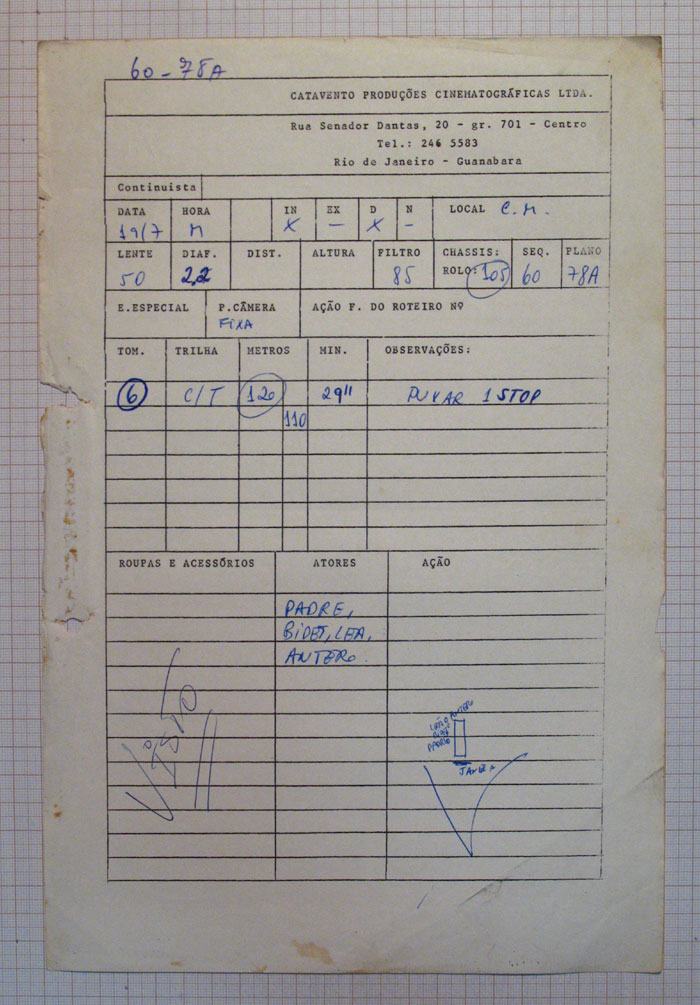 60 - 78A
CATAVENTO PRODUÇÕES CINEMATOGRÁFICAS LTDA.
Rua Senador Dantas, 20 - gr. 701 - Centro
Tel.: 246 5583
Rio de Janeiro - Guanabara
Continuista
DATA HORA IN EX D N LOCAL C.M.
19/7 M X - X -
LENTE DIAF. DIST. ALTURA FILTRO CHASSIS: SEQ. PLANO
50 2,2 85 ROLO: 105 60 78A
E.ESPECIAL P.CÂMERA AÇÃO F. DO ROTEIRO Nº
FIXA
TOM. TRILHA METROS MIN. OBSERVAÇÕES:
6 C/T 120 29" PUXAR 1 STOP
110
ROUPAS E ACESSÓRIOS ATORES AÇÃO
PADRE,
BIDET, LEA,
ANTERO.
VISTO
ANTERO
PADRE